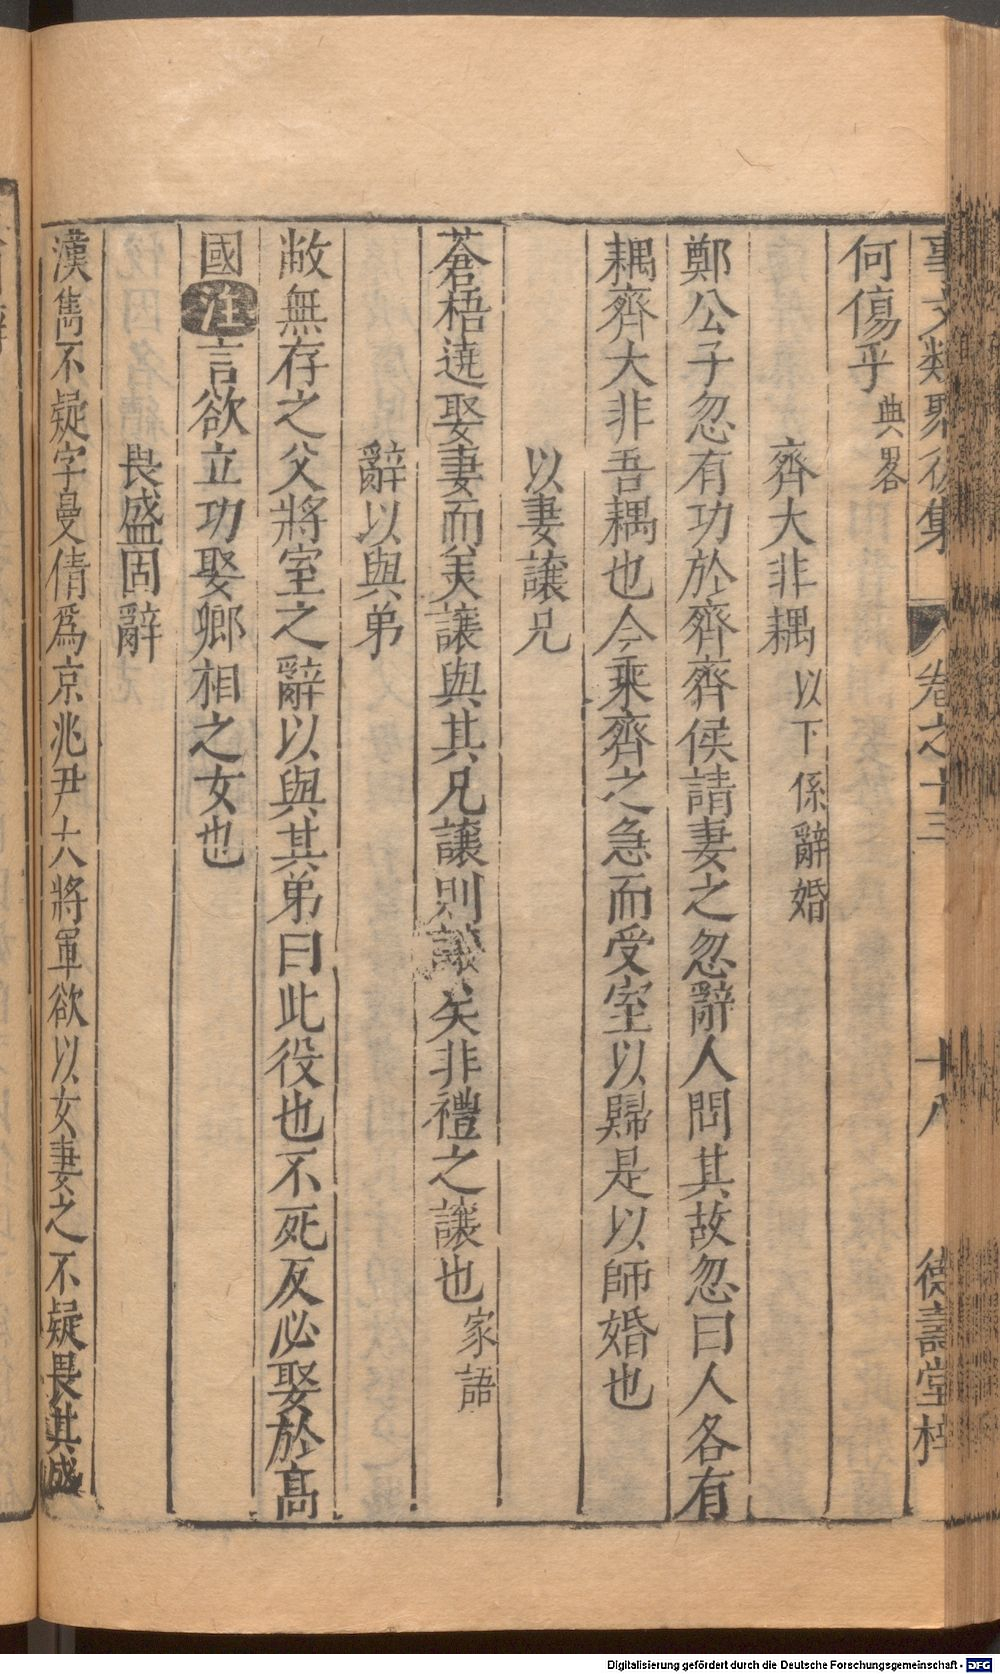 事文類聚後集 卷之十三 十八 德壽堂梓
何傷乎典畧
齊大非耦以下係辭婚
鄭公子忽有功於齊齊侯請妻之忽辭人問其故忽曰人各有
耦齊大非吾耦也今乘齊之急而受室以歸是以師婚也
以妻讓兄
蒼梧遶娶妻而美讓與其兄讓則讓矣非禮之讓也家語
辭以與弟
敝無存之父將室之辭以與其弟曰此役也不死反必娶於高
國注言欲立功娶鄉相之女也
畏盛固辭
漢雋不疑字曼倩爲京兆尹大將軍欲以女妻之不疑畏其盛
Digitalisierung gefördert durch die Deutsche Forschungsgemeinschaft - DFG